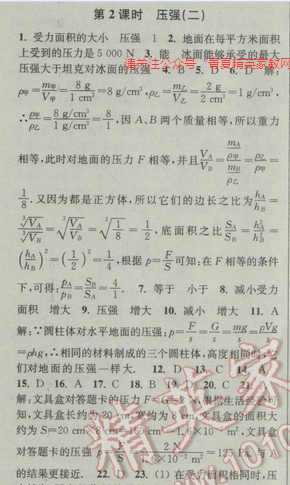 第2课时 压强(二)
1. 受力面积的大小 压强 1 2. 地面在每平方米面积
上受到的压力是5 000 N 3. 能 冰面能够承受的最大
压强大于坦克对冰面的压强 4. B 5. D 6. D 解:
ρ甲=m甲/V甲=8 g/1 cm³=8 g/cm³, ρ乙=m乙/V乙=2 g/2 cm³=1 g/cm³,
∴ρ甲/ρ乙=8 g/cm³/1 g/cm³=8/1,因A、B两个质量相等,所以重力
相等,此时对地面的压力F相等,并且V_A/V_B=(m_A/ρ甲)/(m_B/ρ乙)=ρ乙/ρ甲=
1/8. 又因为都是正方体,所以它们的边长之比为h_A/h_B=
∛V_A/∛V_B=∛(V_A/V_B)=∛(1/8)=1/2,底面积之比S_A/S_B=
(h_A/h_B)²=(1/2)²=1/4,根据p=F/S可知:在F相等的条件
下,可得:p_A/p_B=S_B/S_A=4/1. 7. 等于 小于 8. 减小受力
面积 增大 9. 压强 增大 10. 减小 增大 11. A
解:∵圆柱体对水平地面的压强:p=F/s=G/s=mg/s=ρVg/s
=ρhg,∴相同的材料制成的三个圆柱体,高度相同时,它
们对地面的压强一样大. 12. D 13. C 14. A
15. D 16. A 17. C 18. C 19. B 20. D 21. B
解:文具盒对答题卡的压力F=G=2 N,根据生活经验可
知,文具盒长约为20 cm,宽约为8 cm,文具盒的面积大
约为S=20 cm×8 cm=160 cm²=1.6×10⁻² m²,文具盒
对答题卡的压强p=F/S=2 N/1.6×10⁻² m²=125 Pa,与
的结果更接近. 22. D 23. (1)在受力面积相同时,压